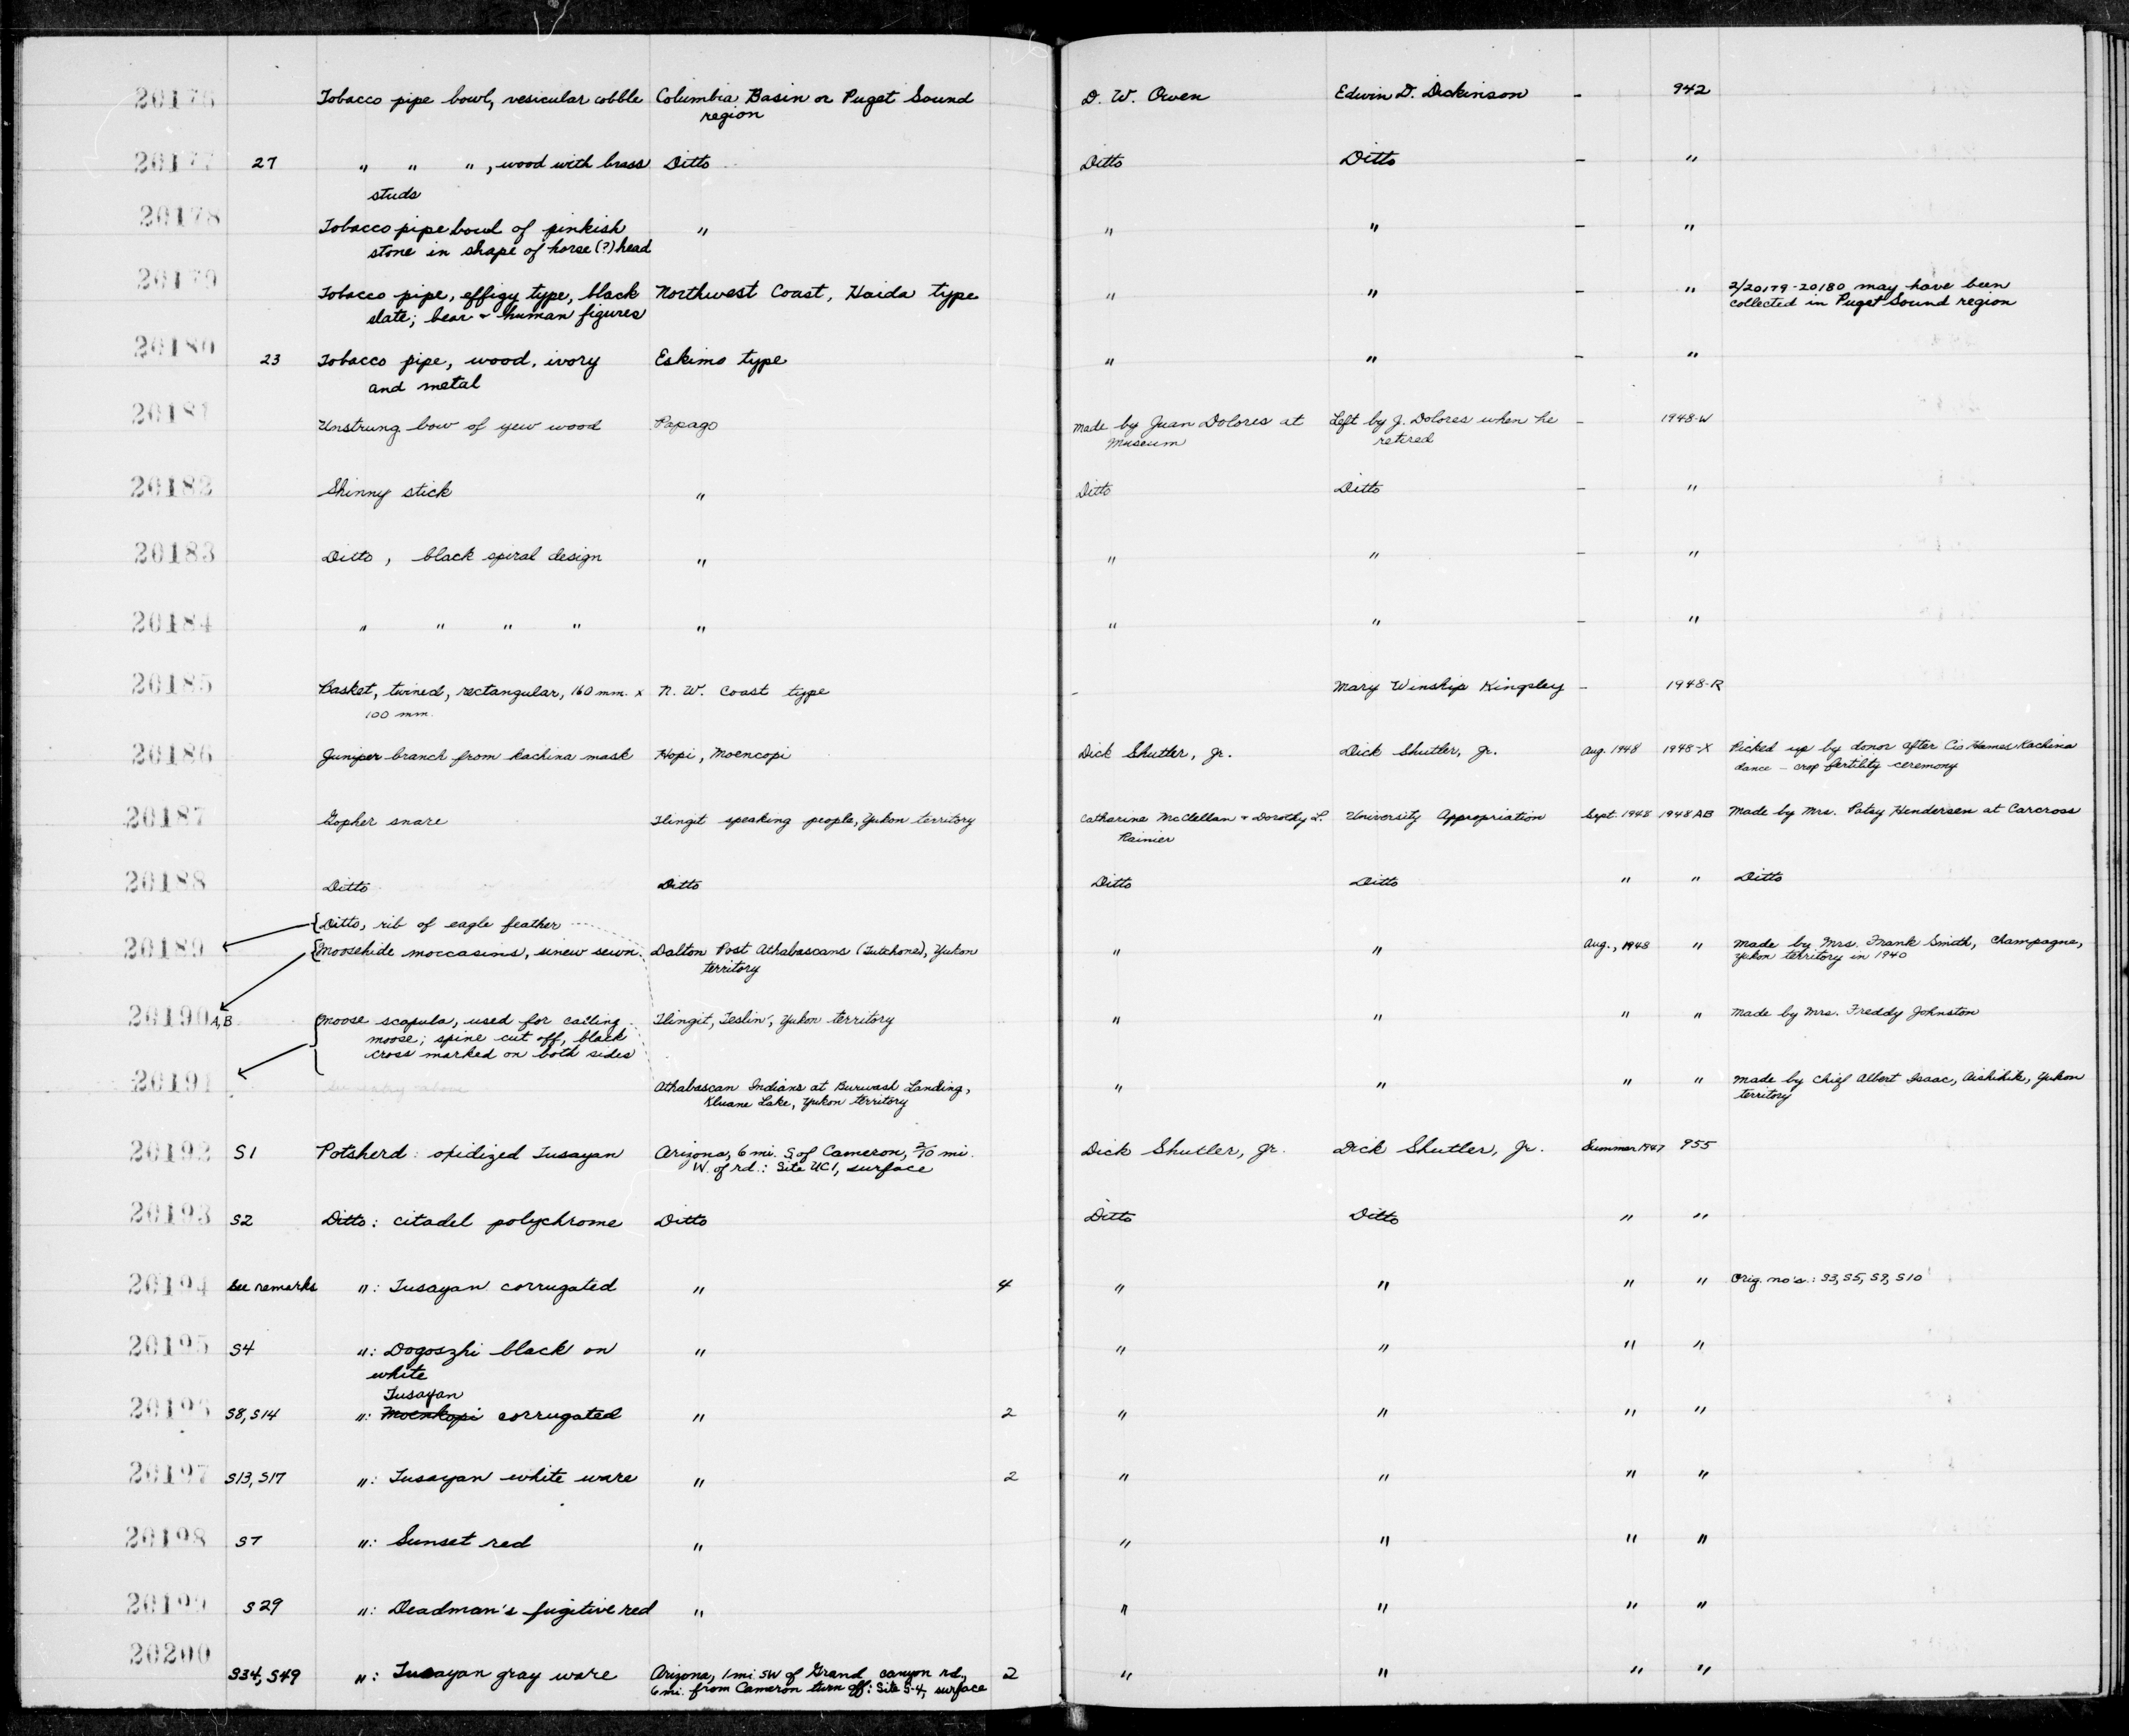 20176 Tobacco pipe bowl, vesicular cobble Columbia Basin or Puget Sound D. W. Owen Edwin D. Dickinson - 942
region
20177 27 " " " , wood with brass Ditto Ditto Ditto - "
studs
20178 Tobacco pipe bowl of pinkish " " " - "
stone in shape of horse (?) head
20179 Tobacco pipe, effigy type, black Northwest Coast, Haida type " " - " 2/20179-20180 may have been
slate; bear + human figures collected in Puget Sound region
20180 23 Tobacco pipe, wood, ivory Eskimo type " " - "
and metal
20181 Unstrung bow of yew wood Papago Made by Juan Dolores at Left by J. Dolores when he - 1948-W
Museum retired
20182 Shinny stick " Ditto Ditto - "
20183 Ditto, black spiral design " " " - "
20184 " " " " " " " - "
20185 Basket, twined, rectangular, 160 mm. x N. W. Coast type - Mary Winship Kingsley - 1948-R
100 mm.
20186 Juniper branch from kachina mask Hopi, Moencopi Dick Shutler, Jr. Dick Shutler, Jr. Aug. 1948 1948-X Picked up by donor after Cio Hames Kachina
dance - crop fertility ceremony
20187 Gopher snare Tlingit speaking people, Yukon territory Catharine McClellan + Dorothy L. University Appropriation Sept. 1948 1948 AB Made by Mrs. Patsy Henderson at Carcross
Rainier
20188 Ditto Ditto Ditto Ditto " " Ditto
Ditto, rib of eagle feather
20189 Moosehide moccasins, sinew sewn. Dalton Post Athabascans (Tutchone), Yukon " " Aug., 1948 " Made by Mrs. Frank Smith, Champagne,
territory Yukon territory in 1940
20190 A,B Moose scapula, used for calling Tlingit, Teslin, Yukon territory " " " " Made by Mrs. Freddy Johnston
moose; spine cut off, black
cross marked on both sides
20191 Athabascan Indians at Burwash Landing, " " " " Made by Chief Albert Isaac, Aishihik, Yukon
Kluane Lake, Yukon territory territory
20192 S1 Potsherd: oxidized Tusayan Arizona, 6 mi. S of Cameron, 2/10 mi. Dick Shutler, Jr. Dick Shutler, Jr. Summer 1947 955
W. of rd.: Site UC1, surface
20193 S2 Ditto: citadel polychrome Ditto Ditto Ditto " "
20194 See remarks ": Tusayan corrugated " 4 " " " " Orig. no's.: S3, S5, S9, S10
20195 S4 ": Dogoszhi black on " " " " "
white
Tusayan
20196 S8, S14 ": Moenkopi corrugated " 2 " " " "
20197 S13, S17 ": Tusayan white ware " 2 " " " "
20198 S7 ": Sunset red " " " " "
20199 S29 ": Deadman's fugitive red " " " " "
20200 S34, S49 ": Tusayan gray ware Arizona, 1 mi SW of Grand canyon rd., 2 " " " "
6 mi. from Cameron turn off: Site S-4, surface